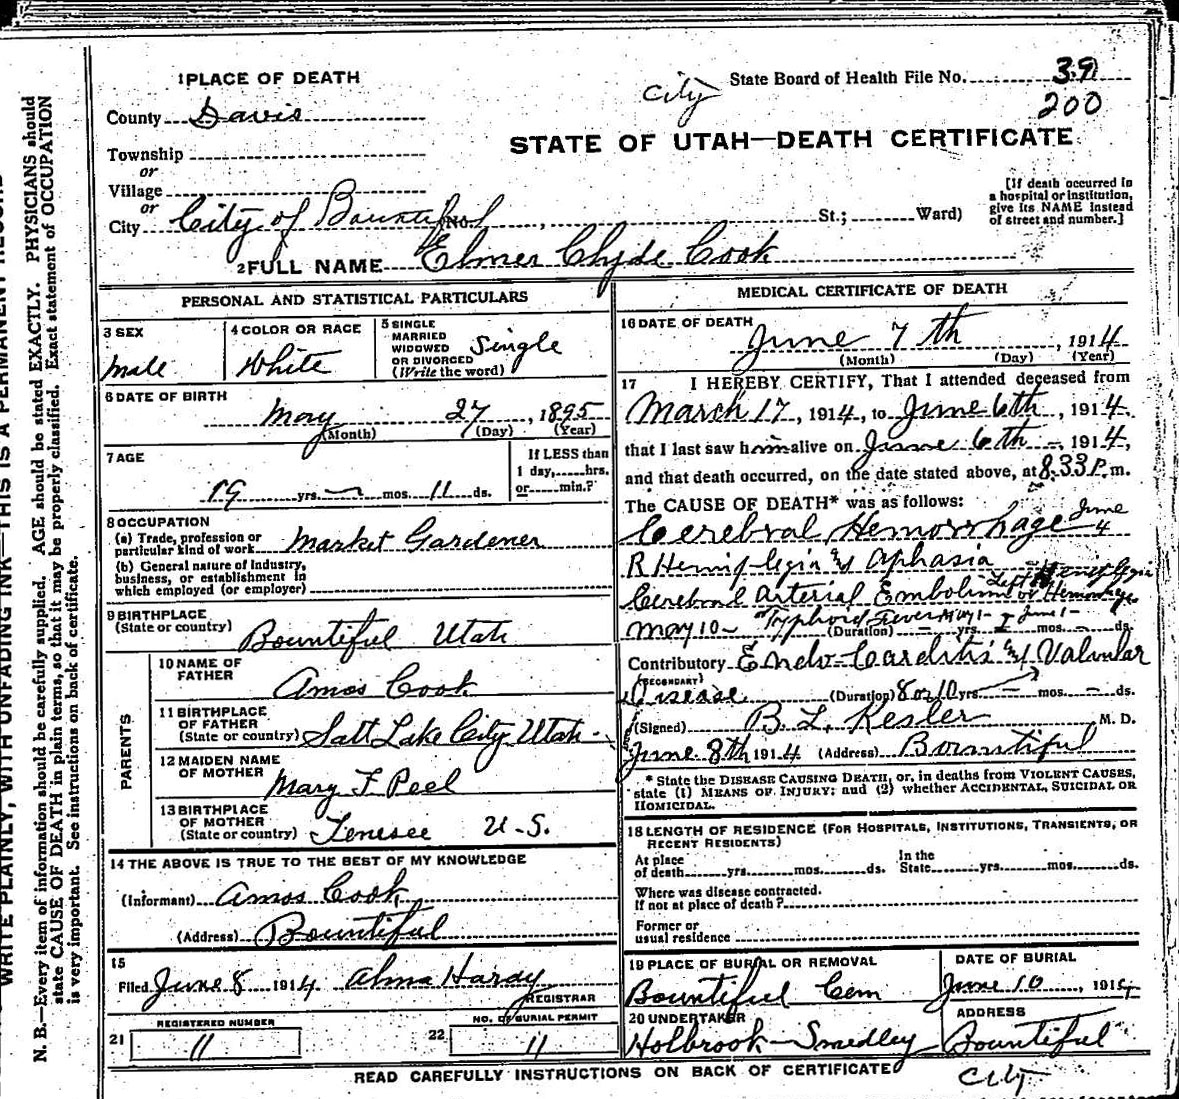 1 PLACE OF DEATH
City
State Board of Health File No. 39
200
County Davis
STATE OF UTAH—DEATH CERTIFICATE
Township
or
Village
or
City City of Bountiful No. , St.; Ward)
[If death occurred in
a hospital or institution,
give its NAME instead
of street and number.]
2 FULL NAME Elmer Clyde Cook
PERSONAL AND STATISTICAL PARTICULARS
3 SEX
male
4 COLOR OR RACE
White
5 SINGLE
MARRIED
WIDOWED
OR DIVORCED
(Write the word)
Single
6 DATE OF BIRTH
May 27, 1895
(Month) (Day) (Year)
7 AGE
19 yrs. — mos. 11 ds.
If LESS than
1 day, hrs.
or min.?
8 OCCUPATION
(a) Trade, profession or
particular kind of work Market Gardener
(b) General nature of Industry,
business, or establishment in
which employed (or employer)
9 BIRTHPLACE
(State or country)
Bountiful Utah
PARENTS
10 NAME OF
FATHER
Amos Cook
11 BIRTHPLACE
OF FATHER
(State or country) Salt Lake City Utah
12 MAIDEN NAME
OF MOTHER
Mary F Peel
13 BIRTHPLACE
OF MOTHER
(State or country) Tenesee U-S.
14 THE ABOVE IS TRUE TO THE BEST OF MY KNOWLEDGE
(Informant) Amos Cook
(Address) Bountiful
15
Filed June 8 1914 Alma Hardy
REGISTRAR
REGISTERED NUMBER
21 11
NO. OF BURIAL PERMIT
22 11
MEDICAL CERTIFICATE OF DEATH
16 DATE OF DEATH
June 7th, 1914
(Month) (Day) (Year)
17 I HEREBY CERTIFY, That I attended deceased from
March 17, 1914, to June 6th, 1914,
that I last saw him alive on June 6th, 1914,
and that death occurred, on the date stated above, at 8.33 P.m.
The CAUSE OF DEATH* was as follows:
Cerebral Hemorrhage June 4
R Hemiplegia & Aphasia
Cerebral Arterial Embolism or Hemorrhage
Left Hemiplegia
May 10— Typhoid Fever May 1- June 1-
(Duration) — yrs. mos. — ds.
Contributory Endo-Carditis & Valvular
(SECONDARY)
Disease (Duration) 8 or 10 yrs. — mos. — ds.
(Signed) B. L. Kesler M. D.
June 8th 1914 (Address) Bountiful
* State the DISEASE CAUSING DEATH, or, in deaths from VIOLENT CAUSES,
state (1) MEANS OF INJURY; and (2) whether ACCIDENTAL, SUICIDAL OR
HOMICIDAL.
18 LENGTH OF RESIDENCE (FOR HOSPITALS, INSTITUTIONS, TRANSIENTS, OR
RECENT RESIDENTS)
At place
of death yrs. mos. ds.
In the
State yrs. mos. ds.
Where was disease contracted.
If not at place of death?
Former or
usual residence
19 PLACE OF BURIAL OR REMOVAL
Bountiful Cem
DATE OF BURIAL
June 10, 1914
20 UNDERTAKER
Holbrook-Smedley
ADDRESS
Bountiful
City
READ CAREFULLY INSTRUCTIONS ON BACK OF CERTIFICATE
WRITE PLAINLY, WITH UNFADING INK—THIS IS A PERMANENT RECORD
N. B.—Every item of information should be carefully supplied. AGE should be stated EXACTLY. PHYSICIANS should
state CAUSE OF DEATH in plain terms, so that it may be properly classified. Exact statement of OCCUPATION
is very important. See instructions on back of certificate.